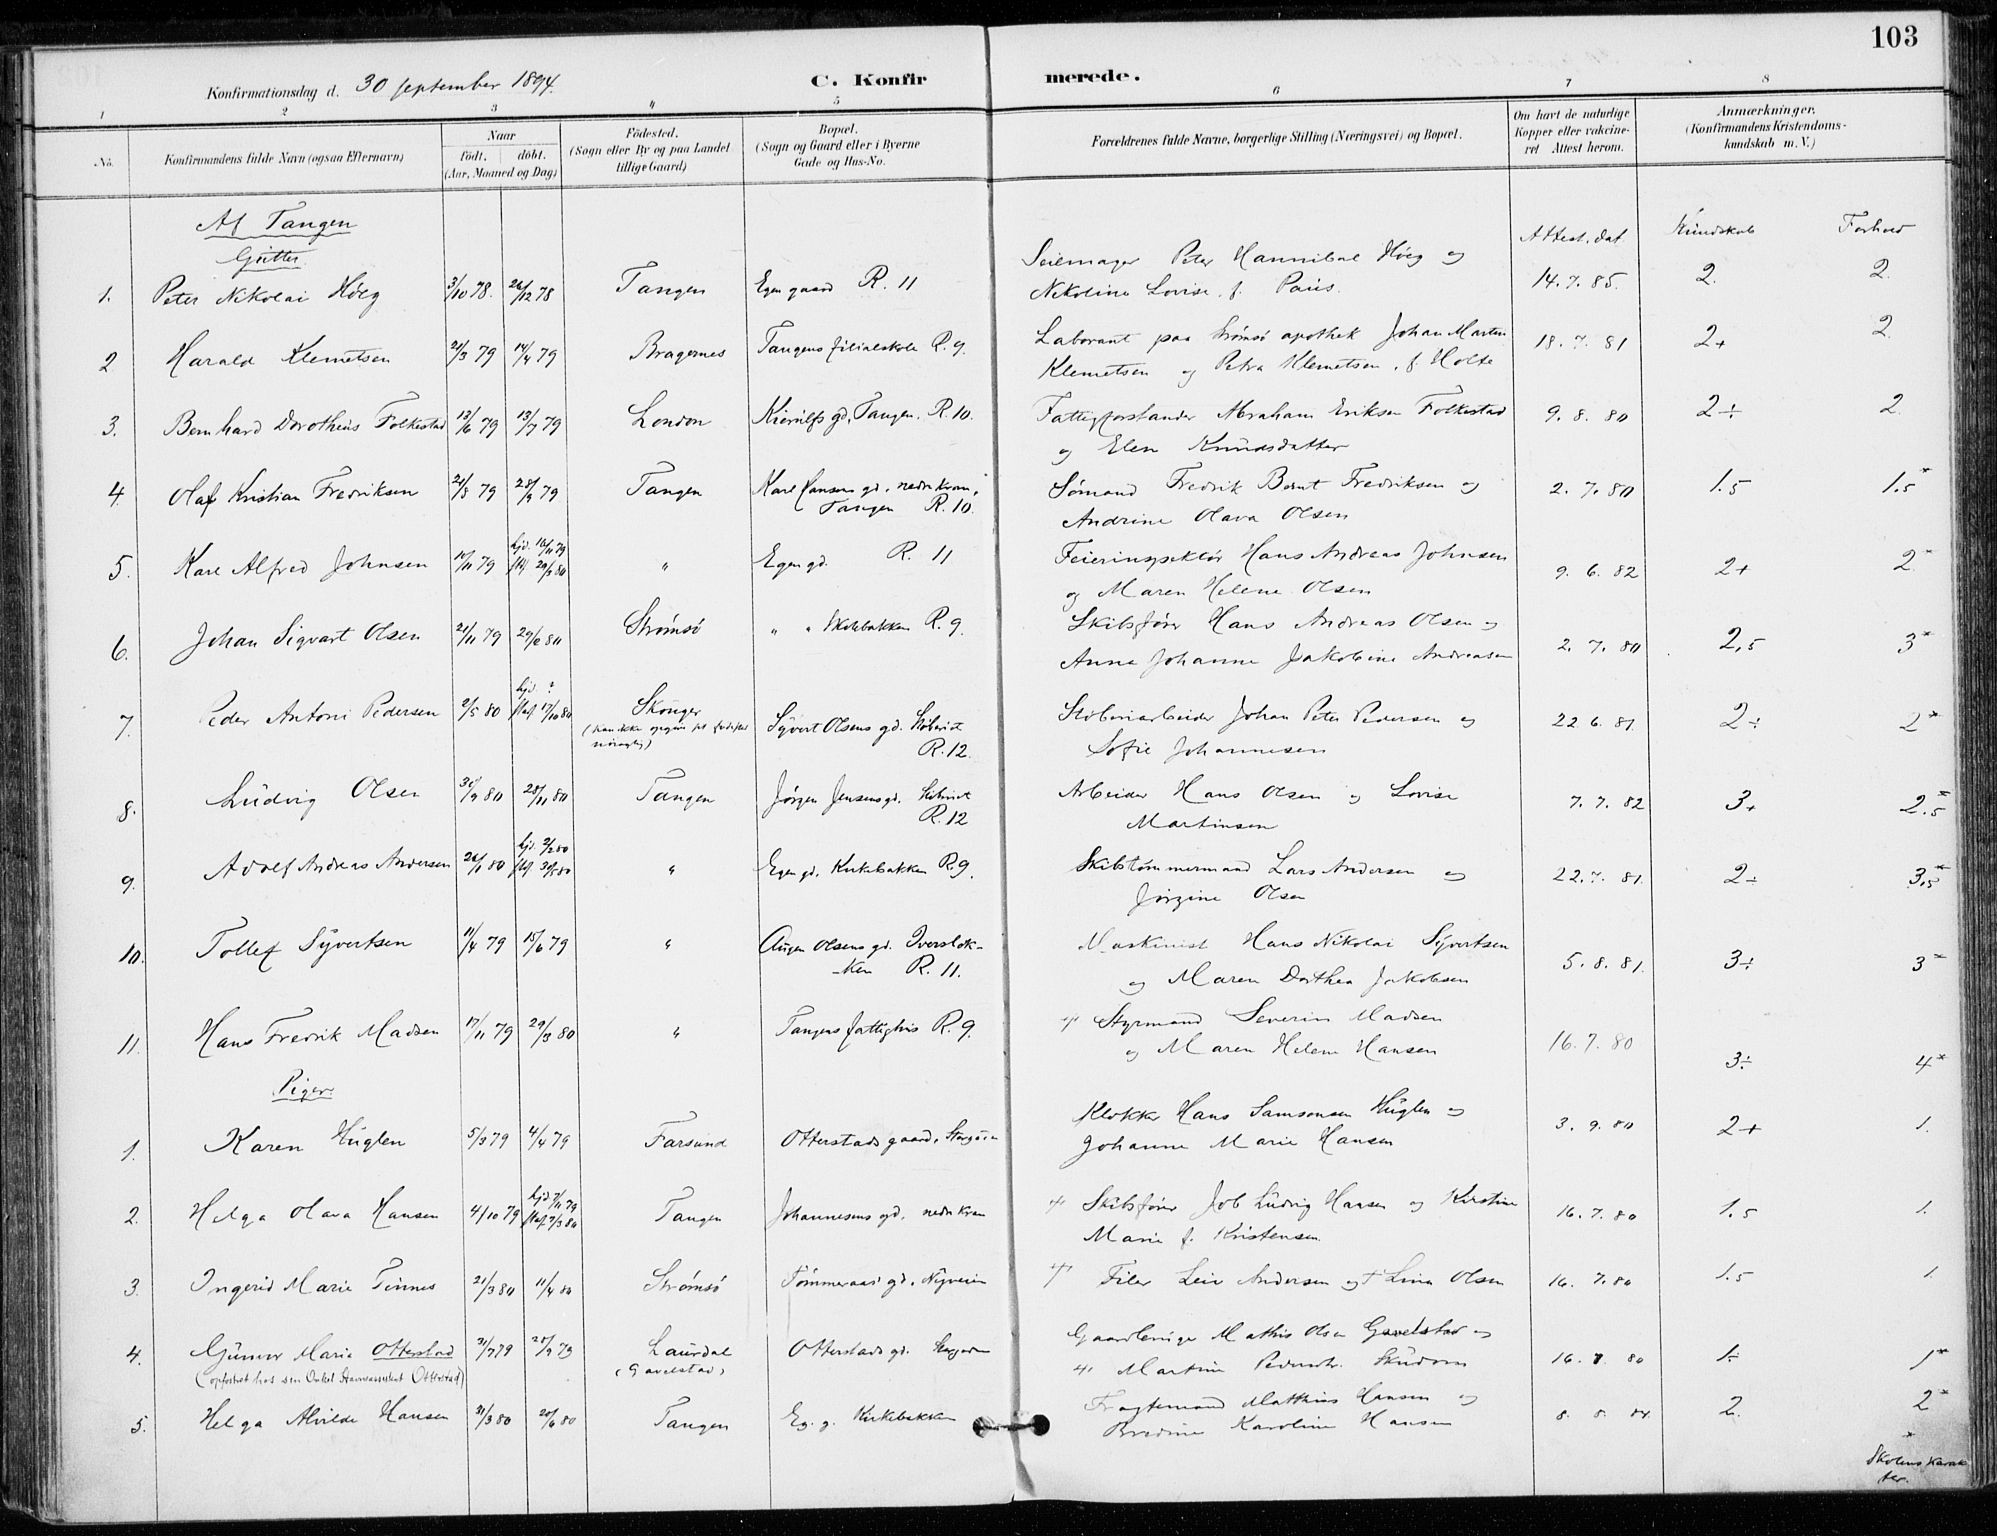 103
Konfirmationsdag d. 30 september 1894.
C. Konfirmerede.
1 2 3 4 5 6 7 8
No. Konfirmandens fulde Navn (ogsaa Efternavn)
Naar
födt. döbt.
(Aar, Maaned og Dag)
Födested.
(Sogn eller By og paa Landet
tillige Gaard)
Bopæl.
(Sogn og Gaard eller i Byerne
Gade og Hus-No.
Forældrenes fulde Navne, borgerlige Stilling (Næringsvei) og Bopæl.
Om havt de naturlige
Kopper eller vakcine-
ret Attest herom.
Anmærkninger,
(Konfirmandens Kristendoms-
kundskab m. V.)
Af Tangen
Gutter.
Attest. dat. Kundskab Forhold
Seilmager Peter Hannibal Höeg og
1. Peter Nikolai Höeg 3/10 78. 26/12 78 Tangen Egen gaard R. 11 Nikoline Lovise f. Paus. 14. 7. 85. 2. 2.
2 Harald Klemetsen 21/3 79 14/4 79 Bragernes Tangens filialskole R. 9. Laborant paa Strømsø apothek Johan Martin 18. 7. 81 2+ 2.
Klemetsen og Petra Klemetsen, f. Holte
3. Bernhard Dorotheus Folkestad 13/6 79 13/7 79 London Kiørulfs gd. Tangen. R. 10. Fattigforstander Abraham Eriksen Folkestad 9. 8. 80 2÷ 2.
og Elen Knudsdatter
4. Olaf Kristian Fredriksen 21/8 79 28/9 79 Tangen Karl Hansens gd. nedre kran, Sømand Fredrik Bernt Fredriksen og 2. 7. 80 1.5 1.5*
Tangen R. 10. Andrine Olava Olsen
5. Karl Alfred Johnsen 10/11 79 hjd. 16/11 79 " Egen gd. R. 11 Feierinspektör Hans Andreas Johnsen 9. 6. 82 2+ 2*
stf. 29/3 80 og Maren Helene Olsen
6. Johan Sigvart Olsen 21/11 79 29/2 80 Strømsø " " Skolebakken R. 9. Skibsfører Hans Andreas Olsen og 2. 7. 80 2,5 3*
Anna Johanne Jakobine Andreasen
7. Peder Antoni Pedersen 2/5 80 hjd. ? Skouger Syvert Olsens gd. Støberiet Støberiarbeider Johan Peter Pedersen og 22. 6. 81 2÷ 2*
stf. 17/10 80 (kan ikke opgive sit fødested nøiagtig) R. 12. Sofie Johannesen
8. Ludvig Olsen 30/9 80 28/11 80 Tangen Jørgen Jensens gd. Støberiet Arbeider Hans Olsen og Lovise 7. 7. 82 3+ 2.5*
R. 12 Martinsen
9. Adolf Andreas Andersen 26/1 80 hjd. 2/2 80 " Egen gd. Kirkebakken R. 9. Skibstømmermand Lars Andersen og 22. 7. 81. 2÷ 3.5*
stf. 30/5 80 Jørgine Olsen
10. Tollef Syvertsen 11/4 79 15/6 79 " Augen Olsens gd. Iversløk- Maskinist Hans Nikolai Syvertsen 5. 8. 81. 3÷ 3*
-ken R. 11. og Maren Dorthea Jakobsen
11. Hans Fredrik Madsen 17/11 79 29/3 80 " Tangens fattighus R. 9. † Styrmand Severin Madsen 16. 7. 80 3÷ 4*
og Maren Helene Hansen
Piger
1. Karen Huglen 5/3 79 4/4 79 Farsund Otterstads gaard, Storgaden Klokker Hans Samsonsen Huglen og 3. 9. 80 2+ 1.
Johanne Marie Hansen
2. Helga Olava Hansen 4/10 79 hjd. 7/11 79 Tangen Johannesens gd. nedre Kran † Skibsfører Job Ludvig Hansen og Kirstine 16. 7. 80 1.5 1.
stf. 7/3 80 Marie f. Kristensen.
3. Ingerid Marie Tinnes 21/3 80 11/4 80 Strømsø Tømmeraas' gd. Nyveien † Filer Leiv Andersen og † Lina Olsen 16. 7. 80 1.5 1.
4. Gunvor Marie Otterstad 31/7 79 28/9 79 Laurdal Otterstads gd. Storgaden Gaardbruger Mathis Olsen Gavelstad og 16. 7. 80 1÷ 1*
(opfostret hos sin Onkel Havneassistent Otterstad) (Gavelstad) † Martine Pedersdr.
5. Helga Alvilde Hansen 21/3 80 20/6 80 Tangen Eg. g. Kirkebakken Fragtemand Matthias Hansen og 8. 5. 84. 2. 2*
Bredine Karoline Hansen
* Skolens karak
ter.